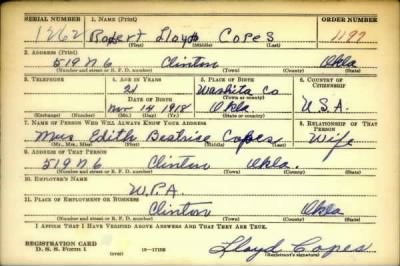 SERIAL NUMBER 1. NAME (Print) ORDER NUMBER
1262 Robert Lloyd Copes 1197
(First) (Middle) (Last)
2. ADDRESS (Print)
519 N. 6 Clinton Okla
(Number and street or R. F. D. number) (Town) (County) (State)
3. TELEPHONE 4. AGE IN YEARS 5. PLACE OF BIRTH 6. COUNTRY OF CITIZENSHIP
21 Washita Co
DATE OF BIRTH (Town or county)
Nov 14 1918 Okla U.S.A.
(Exchange) (Number) (Mo.) (Day) (Yr.) (State or country)
7. NAME OF PERSON WHO WILL ALWAYS KNOW YOUR ADDRESS 8. RELATIONSHIP OF THAT PERSON
Mrs Edith Beatrice Copes Wife
(Mr., Mrs., Miss) (First) (Middle) (Last)
9. ADDRESS OF THAT PERSON
519 N. 6 Clinton Okla.
(Number and street or R. F. D. number) (Town) (County) (State)
10. EMPLOYER'S NAME
W.P.A.
11. PLACE OF EMPLOYMENT OR BUSINESS
Clinton Okla
(Number and street or R. F. D. number) (Town) (County) (State)
I AFFIRM THAT I HAVE VERIFIED ABOVE ANSWERS AND THAT THEY ARE TRUE.
REGISTRATION CARD
D. S. S. Form 1 (over) 16-17105 Lloyd Copes
(Registrant's signature)